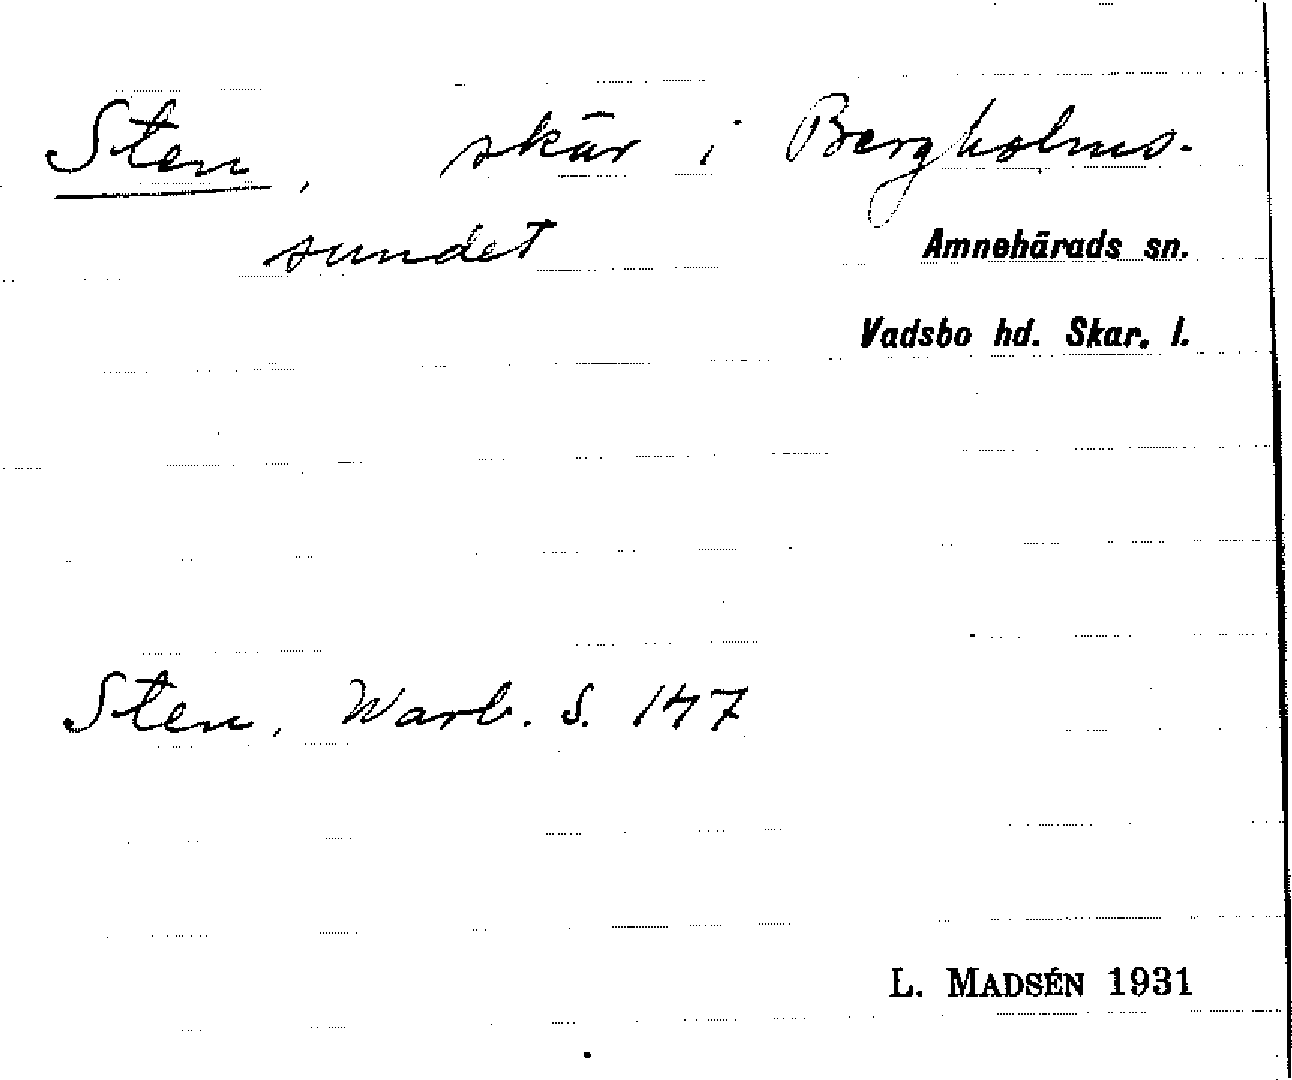 Sten, skär i Bergholms-
sundet
Amnehärads sn.
Vadsbo hd. Skar. l.
Sten, Warb. S. 147
L. MADSÉN 1931